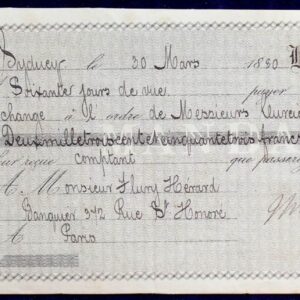 Sydney le 30 Mars 1890
Soixante jours de vue payer
change à l'ordre de Messieurs
Deuxmilletroiscentetcinquantetrois francs
reçue comptant que passere
A Monsieur Flury Hérard
Banquier 372 Rue St Honoré
A Paris